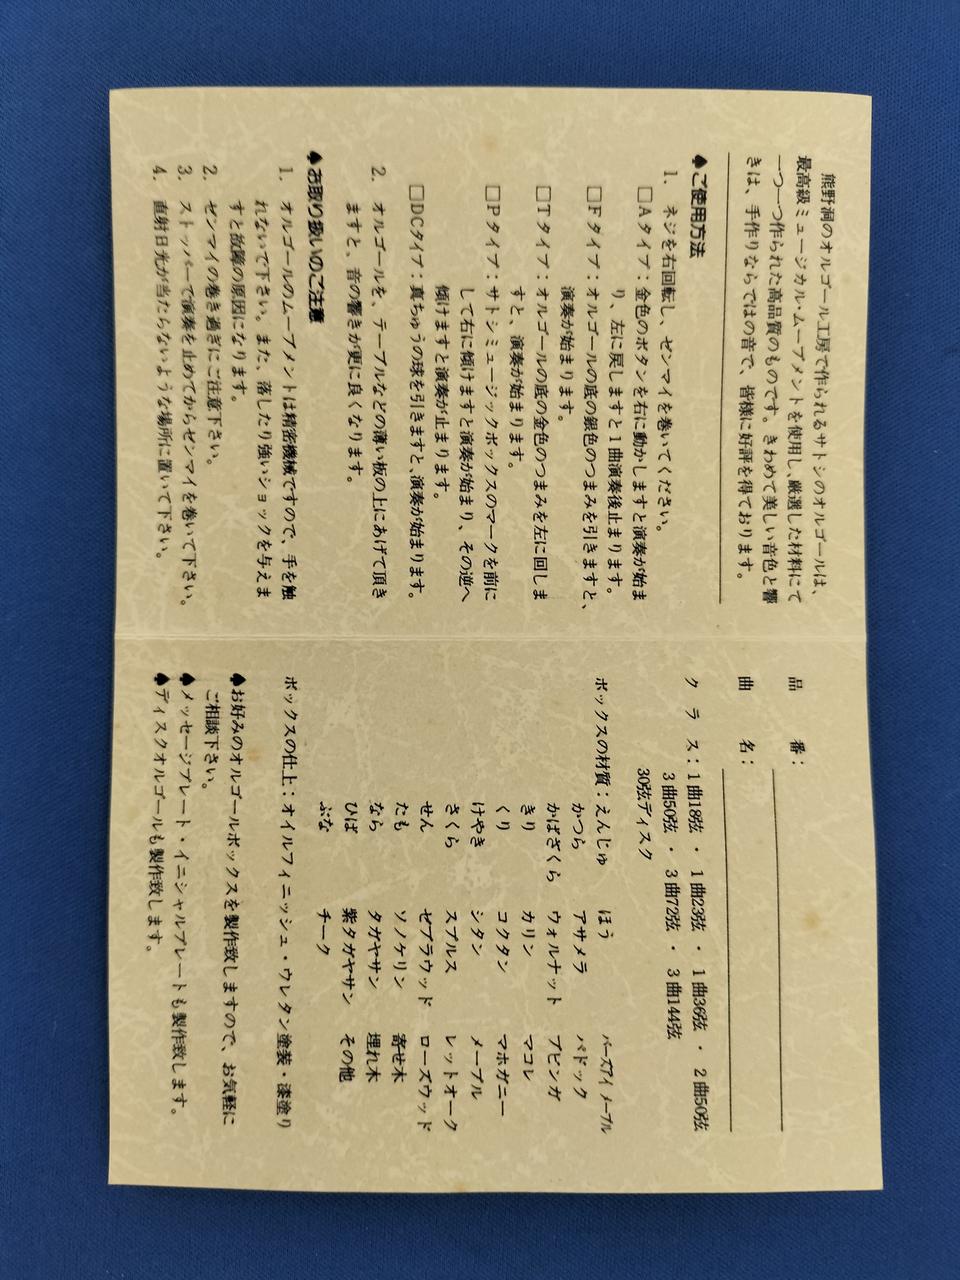 熊野洞のオルゴール工房で作られるサトシのオルゴールは、
最高級ミュージカル・ムーブメントを使用し、厳選した材料にて
一つ一つ作られた高品質のものです。きわめて美しい音色と響
きは、手作りならではの音で、皆様に好評を得ております。
♠ご使用方法
1. ネジを右回転し、ゼンマイを巻いてください。
□Aタイプ:金色のボタンを右に動かしますと演奏が始ま
り、左に戻しますと1曲演奏後止まります。
□Fタイプ:オルゴールの底の銀色のつまみを引きますと、
演奏が始まります。
□Tタイプ:オルゴールの底の金色のつまみを左に回しま
すと、演奏が始まります。
□Pタイプ:サトシミュージックボックスのマークを前に
して右に傾けますと演奏が始まり、その逆へ
傾けますと演奏が止まります。
□DCタイプ:真ちゅうの球を引きますと、演奏が始まります。
2. オルゴールを、テーブルなどの薄い板の上にあげて頂き
ますと、音の響きが更に良くなります。
♠お取り扱いのご注意
1. オルゴールのムーブメントは精密機械ですので、手を触
れないで下さい。また、落したり強いショックを与えま
すと故障の原因になります。
2. ゼンマイの巻き過ぎにご注意下さい。
3. ストッパーで演奏を止めてからゼンマイを巻いて下さい。
4. 直射日光が当たらないような場所に置いて下さい。
品 番:
曲 名:
ク ラ ス:1曲18弦 ・ 1曲23弦 ・ 1曲36弦 ・ 2曲50弦
3曲50弦 ・ 3曲72弦 ・ 3曲144弦
30弦ディスク
ボックスの材質:えんじゅ ほう バーズアイ メープル
かつら アサメラ パドック
かばざくら ウォルナット ブビンガ
きり カリン マコレ
くり コクタン マホガニー
けやき シタン メープル
さくら スプルス レットオーク
せん ゼブラウッド ローズウッド
たも ソノケリン 寄せ木
なら タガヤサン 埋れ木
ひば 紫タガヤサン その他
ぶな チーク
ボックスの仕上:オイルフィニッシュ・ウレタン塗装・漆塗り
♠お好みのオルゴールボックスを製作致しますので、お気軽に
ご相談下さい。
♠メッセージプレート・イニシャルプレートも製作致します。
♠ディスクオルゴールも製作致します。